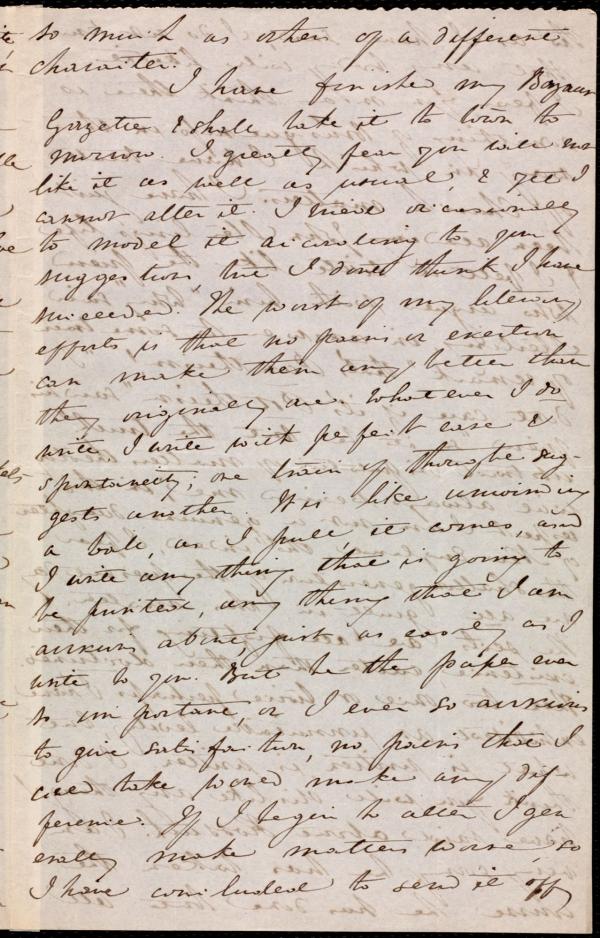 so much as others of a different
character.
I have finished my Bazaar
Gazette & shall take it to town to
morrow. I greatly fear you will not
like it as well as usual, & yet I
cannot alter it. I tried occasionally
to model it according to your
suggestions, but I don't think I have
succeeded. The worst of my literary
efforts is that no pains or exertion
can make them any better than
they originally are. Whatever I do
write I write with perfect ease &
spontaneity; one train of thought sug-
gests another. It is like unwinding
a ball, as I pull it comes, and
I write any thing that is going to
be printed, any thing that I am
anxious about, just as easily as I
write to you. But be the paper ever
so important, or I ever so anxious
to give satisfaction, no pains that I
could take would make any dif
ference. If I begin to alter I gen
erally make matters worse, so
I have concluded to send it off